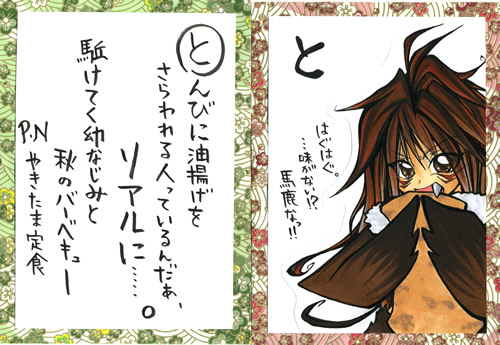 とんびに油揚げを
さらわれる人っているんだぁ、
リアルに……。
駈けてく幼なじみと
秋のバーベキュー
P.N
やきたま定食
と
はぐはぐ。
…味がない!?
馬鹿なっ!!